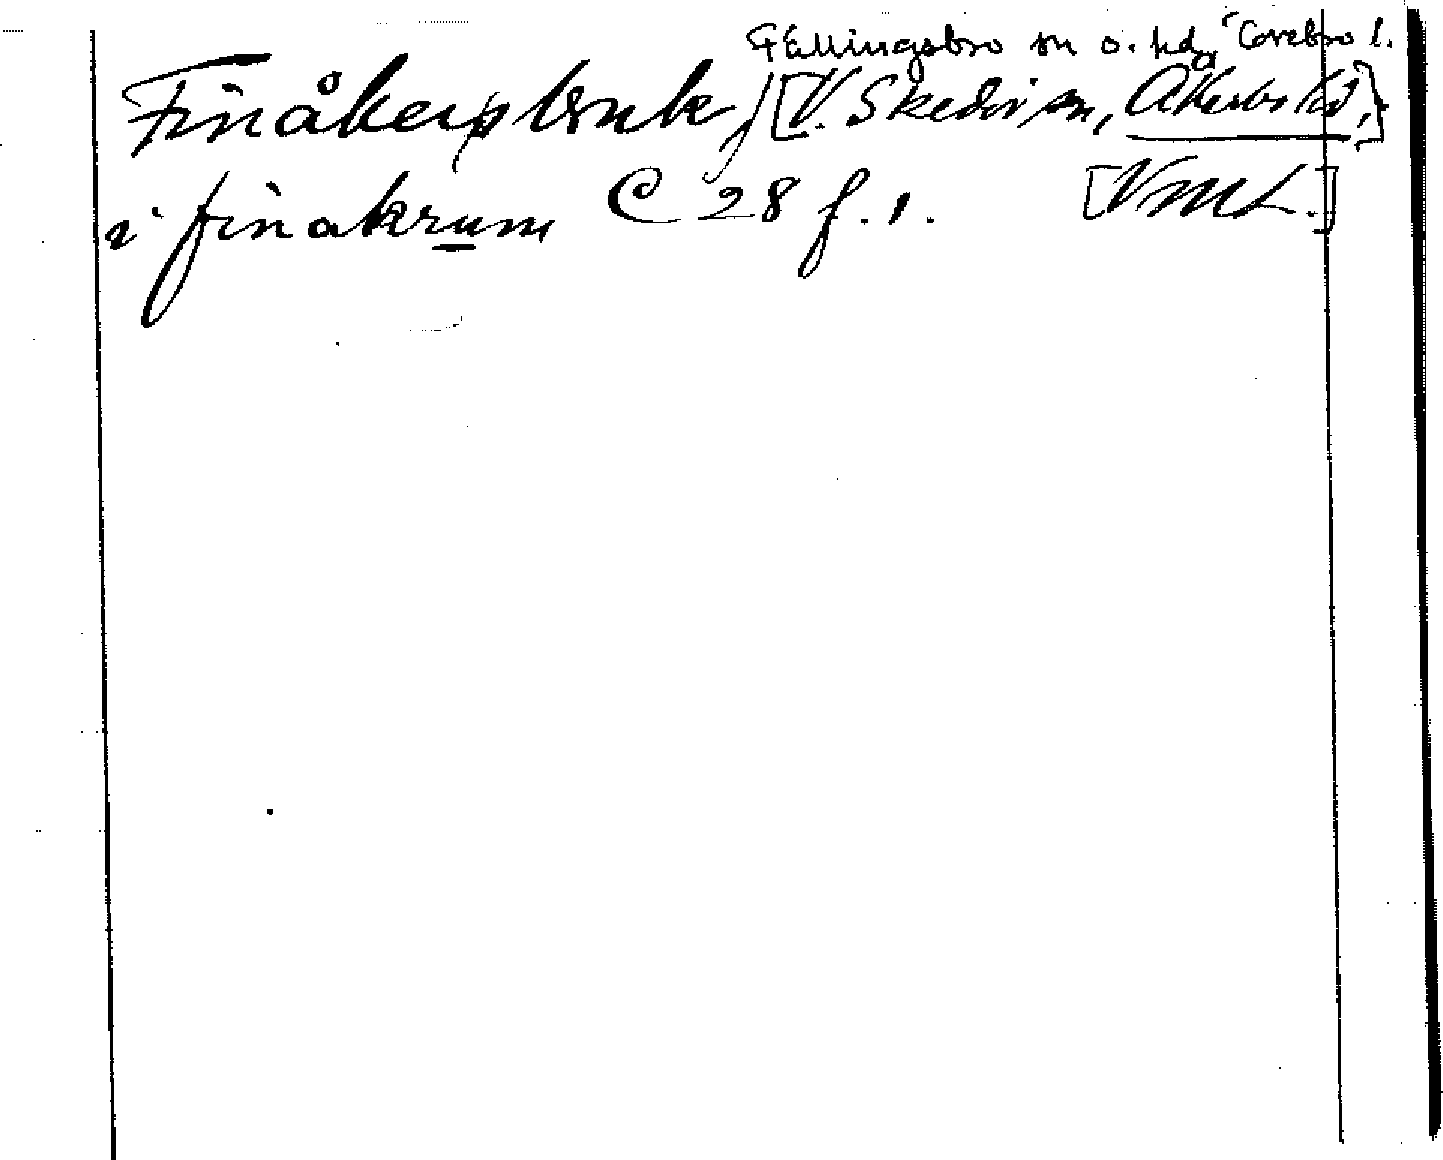 Fellingsbro sn o. hd, Örebro l.
Finåkers bruk, [V. Skedvi sn, Åkerbo hd,]
i finakrum C 28 f. 1. [VmL.]